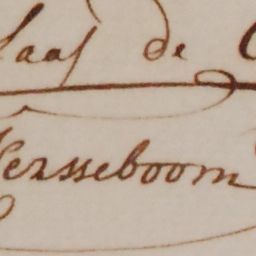 laas de
Kersseboom